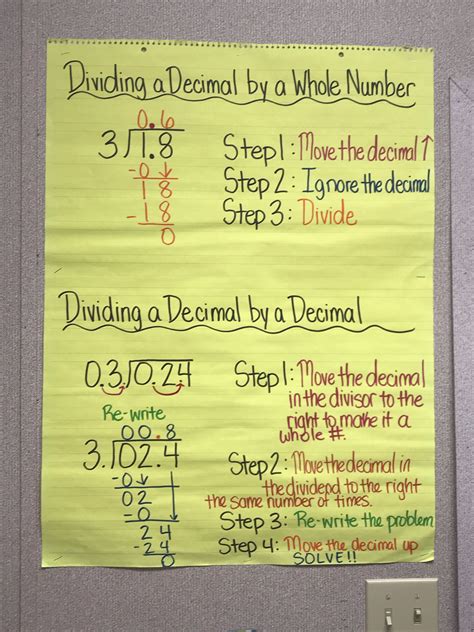 Dividing a Decimal by a Whole Number
0.6
3)1.8
-0↓
18
-18
0
Step 1: Move the decimal ↑
Step 2: Ignore the decimal
Step 3: Divide
Dividing a Decimal by a Decimal
0.3)0.24
Re-write
00.8
3.)02.4
-0↓
02
-0↓
24
-24
0
Step 1: Move the decimal
in the divisor to the
right to make it a
whole #.
Step 2: Move the decimal in
the dividend to the right
the same number of times.
Step 3: Re-write the problem
Step 4: Move the decimal up
SOLVE!!